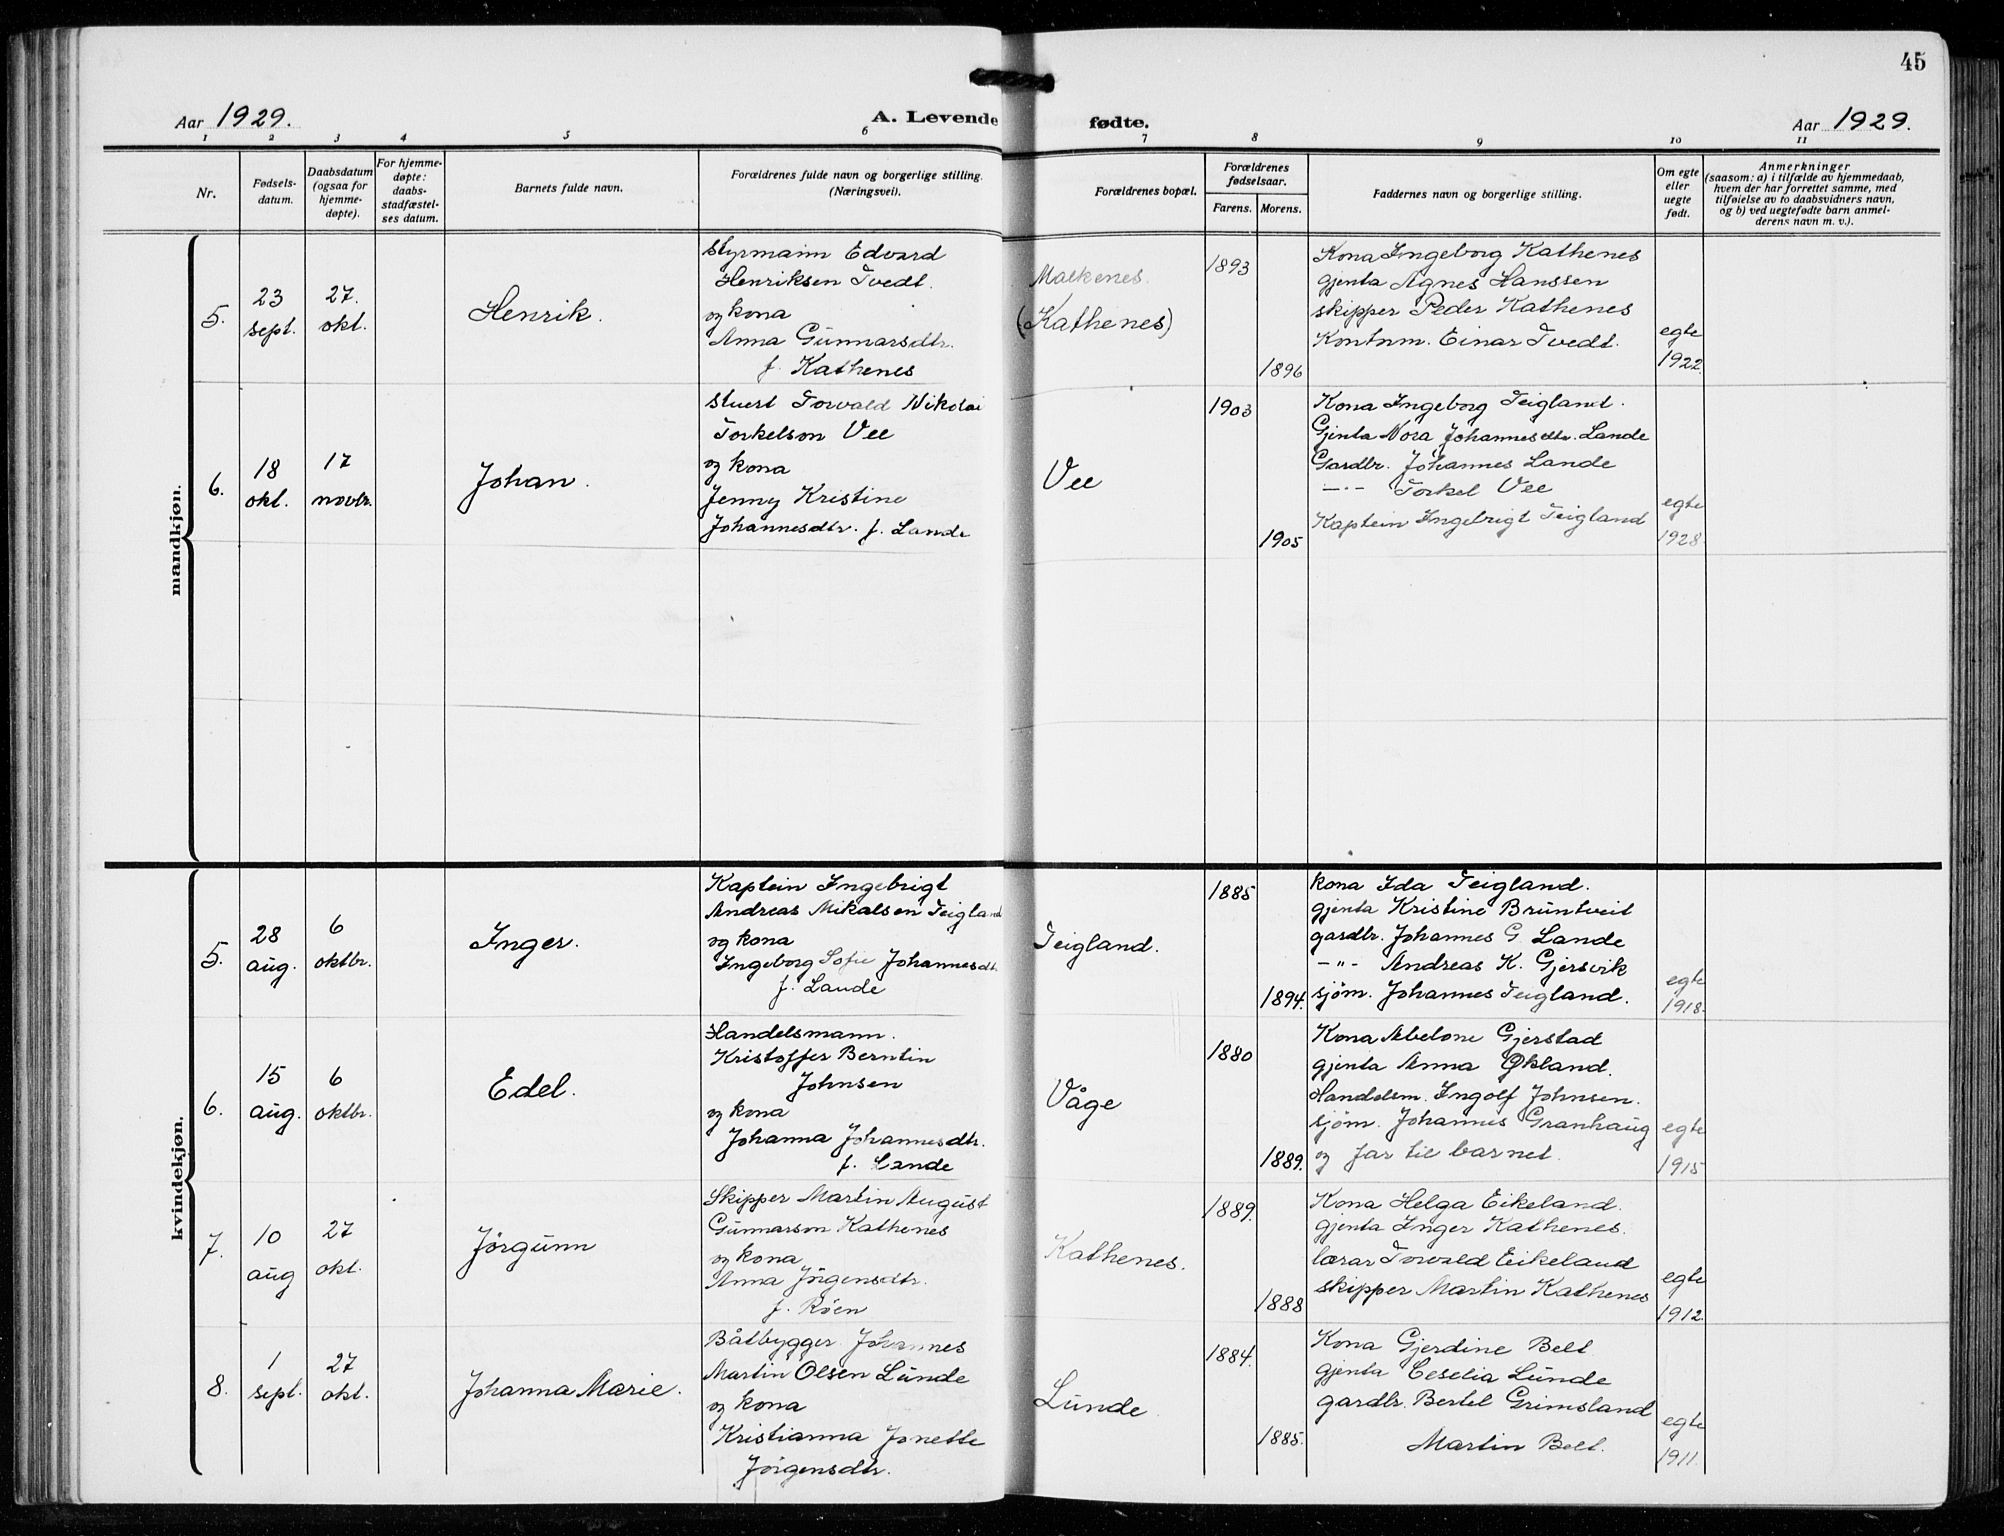 45
Aar 1929.
A. Levende fødte.
Aar 1929.
1 2 3 4 5 6 7 8 9 10 11
Nr.
Fødsels-
datum.
Daabsdatum
(ogsaa for
hjemme-
døpte).
For hjemme-
døpte:
daabs-
stadfæstel-
ses datum.
Barnets fulde navn.
Forældrenes fulde navn og borgerlige stilling.
(Næringsvei).
Forældrenes bopæl.
Forældrenes
fødselsaar.
Farens. Morens.
Faddernes navn og borgerlige stilling.
Om egte
eller
uegte
født.
Anmerkninger
(saasom: a) i tilfælde av hjemmedaab,
hvem der har forrettet samme, med
tilføielse av to daabsvidners navn,
og b) ved uegtefødte barn anmel-
derens navn m. v.).
mandkjøn.
5.
23
sept.
27.
okt.
Henrik.
Styrmann Edvard
Henriksen Tvedt.
og kona
Anna Gunnarsdtr.
f. Kathenes
Malkenes.
(Kathenes)
1893
1896
Kona Ingeborg Kathenes
gjenta Agnes Hanssen
skipper Peder Kathenes
Kontrm. Einar Tvedt.
egte
1922.
6.
18
okt.
17
novbr.
Johan.
Stuert Torvald Nikolai
Torkelson Vee
og kona
Jenny Kristine
Johannesdtr. f. Lande
Vee
1903
1905
Kona Ingeborg Teigland.
Gjenta Nora Johannesdtr. Lande
Gardbr. Johannes Lande
-"- Torkel Vee
Kaptein Ingebrigt Teigland
egte
1928
kvindekjøn.
5.
28
aug.
6
oktbr.
Inger.
Kaptein Ingebrigt
Andreas Mikalsen Teigland
og kona
Ingeborg Sofie Johannesdtr.
f. Lande
Teigland.
1885
1894.
kona Ida Teigland.
gjenta Kristine Bruntveit
gardbr. Johannes G. Lande
-"- Andreas K. Gjersvik
sjøm. Johannes Teigland.
egte
1918.
6.
15
aug.
6
oktbr.
Edel.
Handelsmann.
Kristoffer Berntin
Johnsen
og kona
Johanna Johannesdtr.
f. Lande
Våge
1880
1889.
Kona Abelone Gjerstad
gjenta Anna Økland.
Handelsm. Ingolf Johnsen.
sjøm. Johannes Granhaug
og far til barnet.
egte
1915
7.
10
aug
27
okt.
Jörgunn
Skipper Martin August
Gunnarson Kathenes
og kona
Anna Jörgensdtr.
f. Röen
Kathenes.
1889.
1888
Kona Helga Eikeland.
gjenta Inger Kathenes.
lærar Torvald Eikeland
skipper Martin Kathenes
egte
1912.
8.
1
sept.
27
okt.
Johanna Marie.
Båtbygger Johannes
Martin Olsen Lunde
og kona
Kristianna Jonette
Jörgensdtr.
Lunde
1884.
1885.
Kona Gjerdine Belt
gjenta Ceselia Lunde
gardbr. Bertel Grimsland
Martin Belt.
egte
1911.